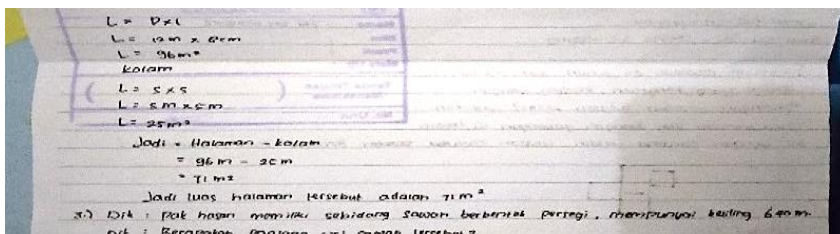 L = P x L
L = 12m x 8cm
L = 96m²
Kolam
L = S x S
L = 5m x 5m
L = 25m²
Jadi = Halaman - kolam
= 96 m - 25 m
= 71 m2
Jadi luas halaman tersebut adalah 71 m²
3.) Dik : Pak hasan memiliki sebidang sawah berbentuk persegi, mempunyai keliling 640 m.
Dit : Berapakah panjang sisi sawah tersebut?